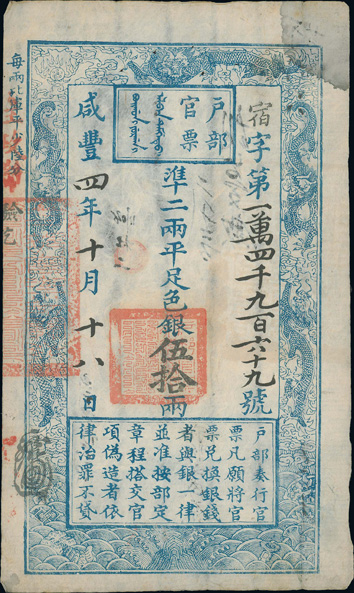 戶部
官票
宿字第一萬四千九百六十九號
準二兩平足色銀伍拾兩
咸豐四年十月十八日
每兩比庫平少陸分
戶部奏行官
票凡願將官
票兌換銀錢
者與銀一律
並准按部定
章程搭交官
項偽造者依
律治罪不貸